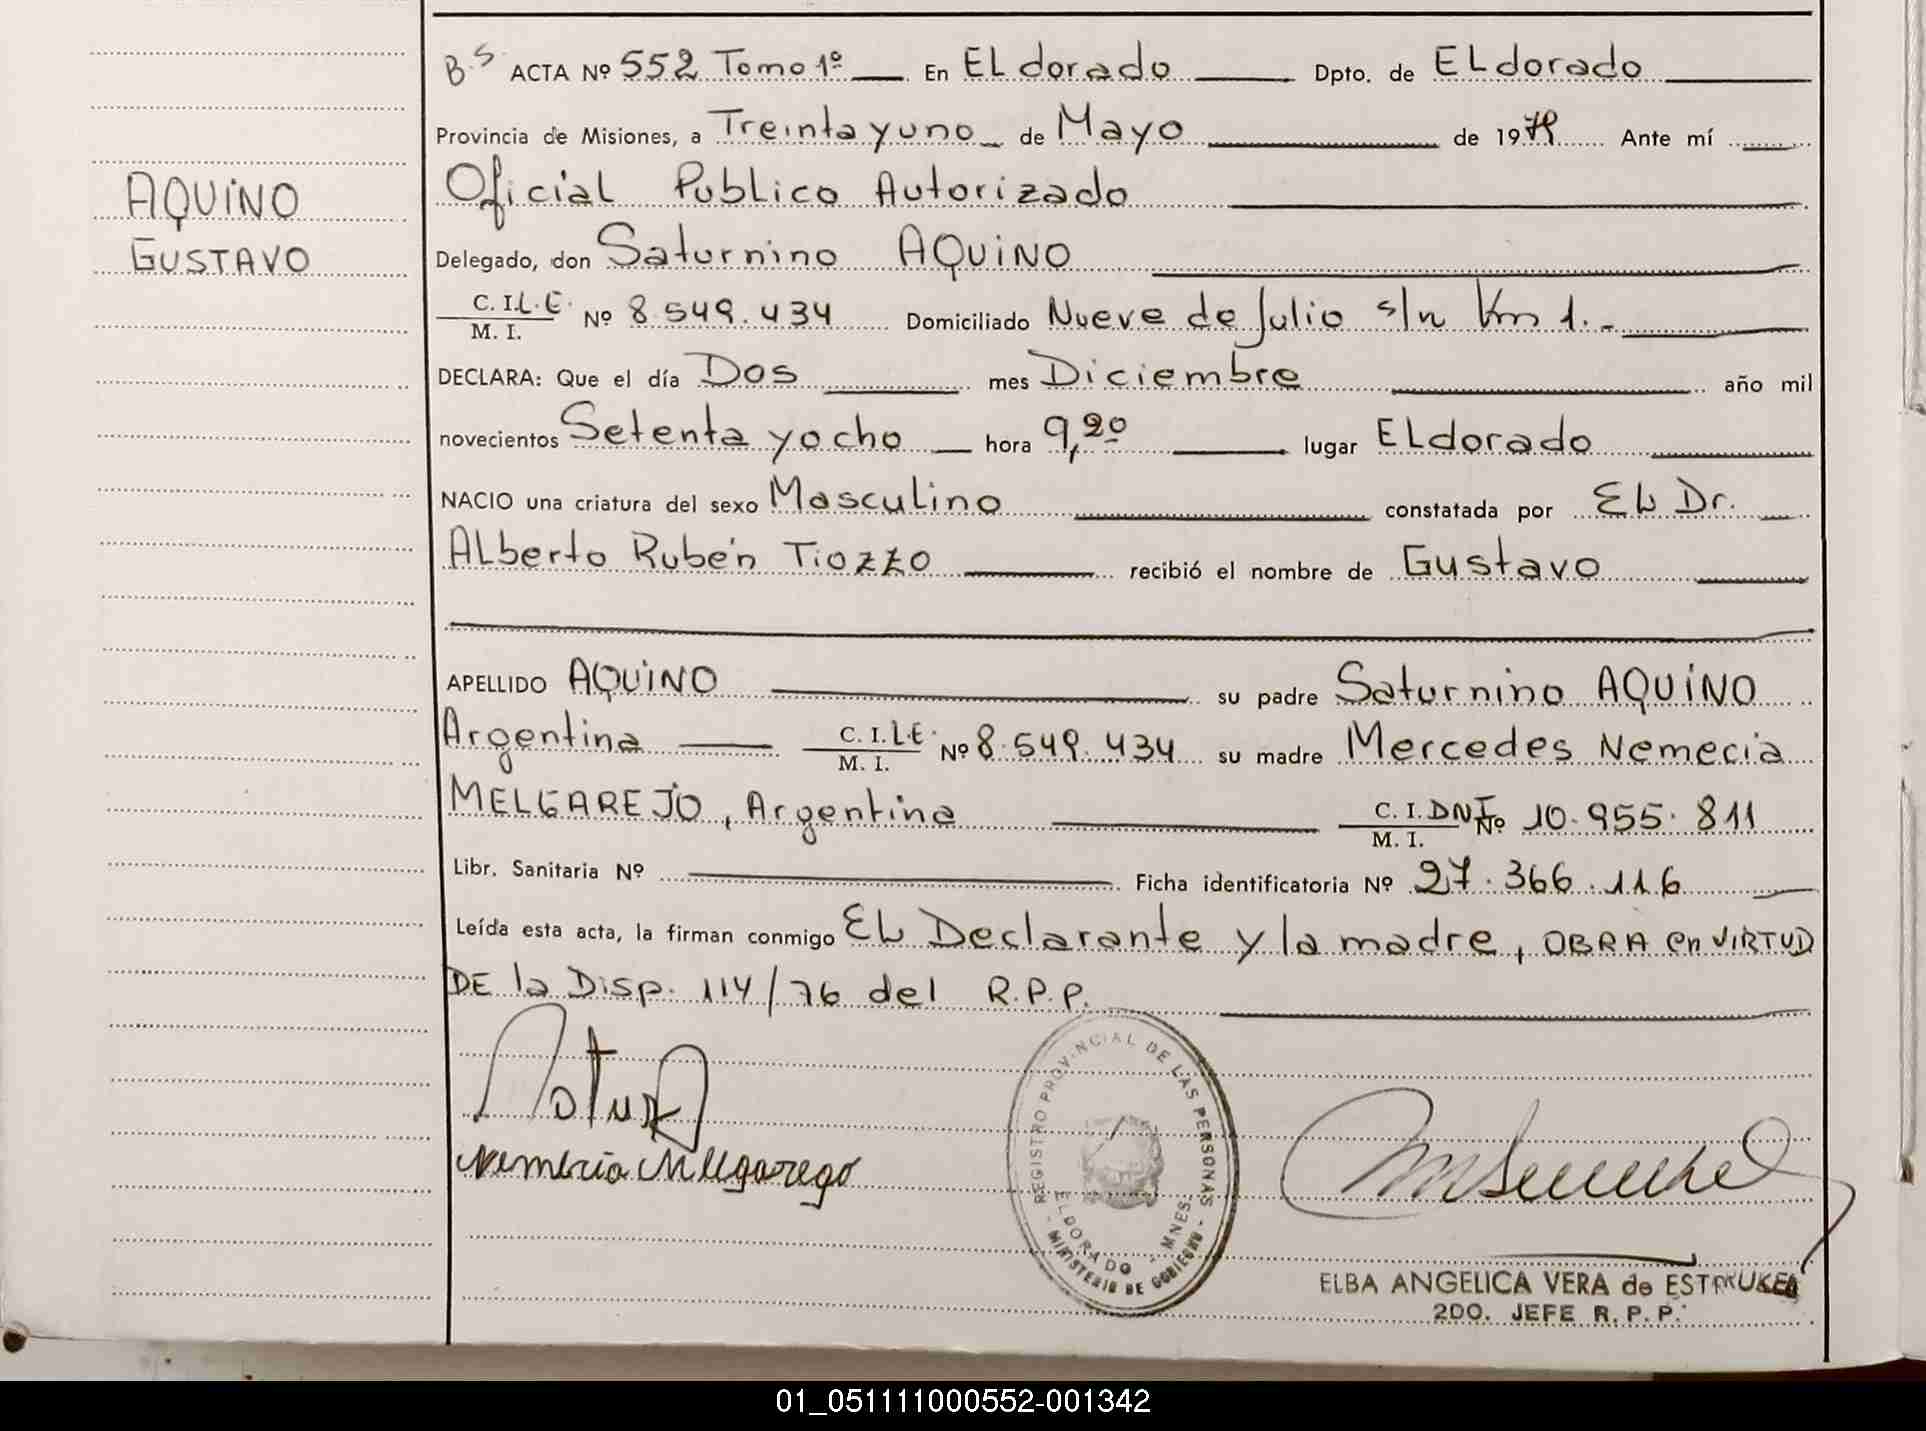 AQUINO
GUSTAVO
B.S ACTA Nº 552 Tomo 1º En ELdorado Dpto. de ELdorado
Provincia de Misiones, a Treinta y uno de Mayo de 1979 Ante mí
Oficial Publico Autorizado
Delegado, don Saturnino AQUINO
C. I. L.E. M. I. Nº 8.549.434 Domiciliado Nueve de Julio s/n Km 1.-
DECLARA: Que el día Dos mes Diciembre año mil
novecientos Setenta y ocho hora 9,20 lugar ELdorado
NACIO una criatura del sexo Masculino constatada por EL Dr.
ALberto Rubén Tiozzo recibió el nombre de Gustavo
APELLIDO AQUINO su padre Saturnino AQUINO
Argentina C. I. L.E. M. I. Nº 8.549.434 su madre Mercedes Nemecia
MELGAREJO, Argentina C. I. DNI M. I. Nº 10.955.811
Libr. Sanitaria Nº Ficha identificatoria Nº 27.366.116
Leída esta acta, la firman conmigo EL Declarante y la madre, OBRA en VIRTUD
DE la Disp. 114/76 del R.P.P.
Nemecia Melgarego
REGISTRO PROVINCIAL DE LAS PERSONAS
ELDORADO - MNES.
- MINISTERIO DE GOBIERNO -
ELBA ANGELICA VERA de
2DO. JEFE R. P. P.
01_051111000552-001342